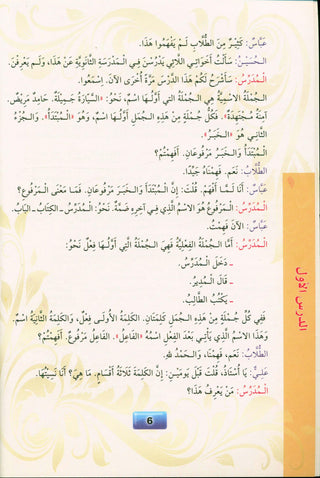 عَبَّاسٌ: كَثِيرٌ مِنَ الطُّلَّابِ لَـمْ يَفْهَمُوا هَذَا.
الـحُسَيْنُ: سَأَلْتُ أَخَوَاتِي اللَّاتِي يَدْرُسْنَ فِي الـمَدْرَسَةِ الثَّانَوِيَّةِ عَنْ هَذَا، وَلَـمْ يَعْرِفْنَ.
الـمُدَرِّسُ: سَأَشْرَحُ لَكُمْ هَذَا الدَّرْسَ مَرَّةً أُخْرَى الآنَ. اِسْمَعُوا.
الـجُمْلَةُ الاسْمِيَّةُ هِيَ الـجُمْلَةُ الَّتِي أَوَّلُـهَا اسْمٌ، نَحْوُ: «السَّيَّارَةُ جَمِيلَةٌ. حَامِدٌ مَرِيضٌ.
آمِنَةُ مُجْتَهِدَةٌ». فَكُلُّ جُمْلَةٍ مِنْ هَذِهِ الـجُمَلِ أَوَّلُـهَا اسْمٌ، وَهُوَ «الـمُبْتَدَأُ». وَالـجُزْءُ
الثَّانِي هُوَ «الـخَبَرُ».
الـمُبْتَدَأُ وَالـخَبَرُ مَرْفُوعَانِ. أَفَهِمْتُمْ؟
الطُّلَّابُ: نَعَمْ، فَهِمْنَاهُ جَيِّدًا.
عَبَّاسٌ: أَنَا لَـمَّا أَفْهَمْ. قُلْتَ: إِنَّ الـمُبْتَدَأَ وَالـخَبَرَ مَرْفُوعَانِ. فَمَا مَعْنَى الـمَرْفُوعِ؟
الـمُدَرِّسُ: الـمَرْفُوعُ هُوَ الاسْمُ الَّذِي فِي آخِرِهِ ضَمَّةٌ. نَحْوُ: الـمُدَرِّسُ ـ الكِتَابُ ـ البَابُ.
عَبَّاسٌ: الآنَ فَهِمْتُ.
الـمُدَرِّسُ: أَمَّا الـجُمْلَةُ الفِعْلِيَّةُ فَهِيَ الـجُمْلَةُ الَّتِي أَوَّلُـهَا فِعْلٌ نَحْوُ:
ـ دَخَلَ الـمُدَرِّسُ.
ـ قَالَ الـمُدِيرُ.
ـ يَكْتُبُ الطَّالِبُ.
فَفِي كُلِّ جُمْلَةٍ مِنْ هَذِهِ الـجُمَلِ كَلِمَتَانِ. الكَلِمَةُ الأُولَـى فِعْلٌ، وَالكَلِمَةُ الثَّانِيَةُ اسْمٌ.
وَهَذَا الاسْمُ الَّذِي يَأْتِـي بَعْدَ الفِعْلِ اسْمُهُ «الفَاعِلُ». الفَاعِلُ مَرْفُوعٌ. أَفَهِمْتُمْ؟
الطُّلَّابُ: نَعَمْ، فَهِمْنَا، وَالـحَمْدُ للهِ.
عَلِيٌّ: يَا أُسْتَاذُ، قُلْتَ قَبْلَ يَوْمَيْنِ: إِنَّ الكَلِمَةَ ثَلَاثَةُ أَقْسَامٍ. مَا هِيَ؟ أَنَا نَسِيتُهَا.
الـمُدَرِّسُ: مَنْ يَعْرِفُ هَذَا؟
6
الدرس الأول